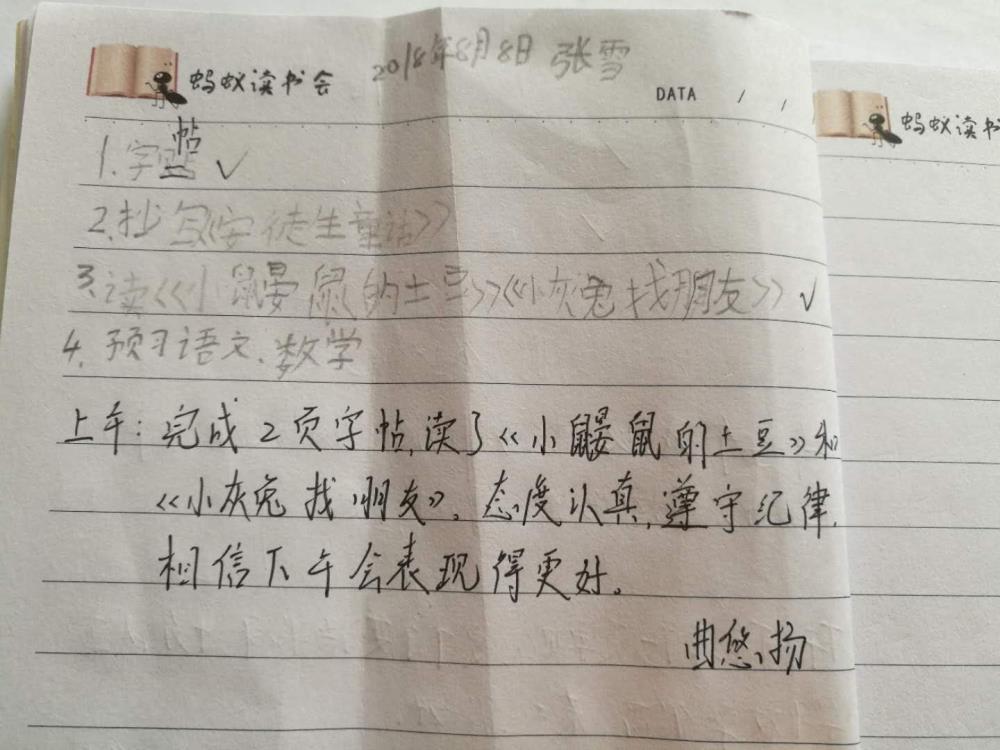 蚂蚁读书会
2018年8月8日 张雪
DATA / /
蚂蚁读书
1.字帖 ✓
2.抄写《安徒生童话》
3.读《小鼹鼠的土豆》《小灰兔找朋友》✓
4.预习语文、数学
上午:完成2页字帖,读了《小鼹鼠的土豆》和
《小灰兔找朋友》。态度认真,遵守纪律,
相信下午会表现得更好。
曲悠扬